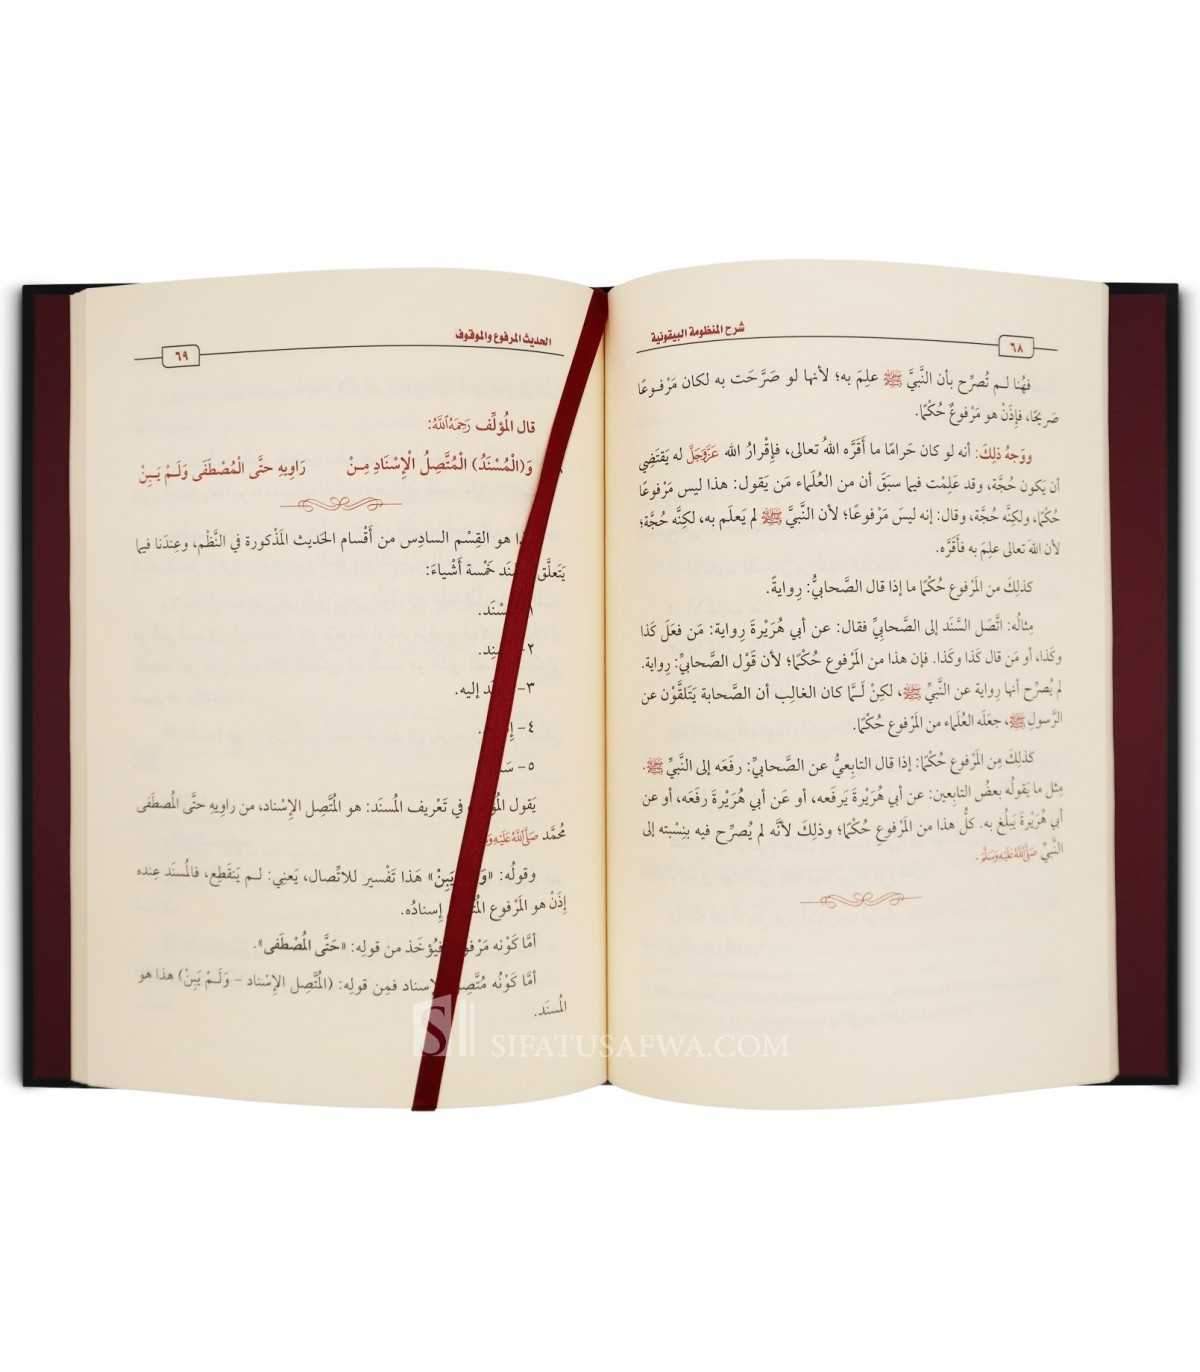 شرح المنظومة البيقونية
٦٨
فهُنا لـم تُصرِّح بأن النَّبيَّ ﷺ علِمَ به؛ لأنها لو صَرَّحَت به لكان مَرْفـوعًا
صَريحًا، فإِذَنْ هو مَرْفوعٌ حُكْمًا.
ووَجهُ ذلِكَ: أنه لو كان حَرامًا ما أَقَرَّه اللهُ تعالى، فإِقْرارُ الله عَزَّوَجَلَّ له يَقتَضِي
أن يَكون حُجَّة، وقد عَلِمْت فيما سبَقَ أن من العُلَماء مَن يَقول: هذا ليس مَرْفوعًا
حُكْمًا، ولكِنَّه حُجَّة، وقال: إنه ليسَ مَرْفوعًا؛ لأن النَّبيَّ ﷺ لم يَعلَم به، لكِنَّه حُجَّة؛
لأن اللهَ تعالى علِمَ به فأَقَرَّه.
كذلِكَ من المَرْفوع حُكْمًا ما إذا قال الصَّحابيُّ: رِوايةً.
مِثالُه: اتَّصَل السَّنَد إلى الصَّحابيِّ فقال: عن أبي هُرَيْرةَ رِواية: مَن فعَلَ كَذا
وكَذا، أو مَن قال كَذا وكَذا. فإن هذا من المَرْفوع حُكْمًا؛ لأن قَوْل الصَّحابيِّ: رِواية.
لم يُصرِّح أنها رِواية عن النَّبيِّ ﷺ، لكِنْ لَـمَّا كان الغالِب أن الصَّحابة يَتَلقَّوْن عن
الرَّسولِ ﷺ، جعَلَه العُلَماء من المَرْفوع حُكْمًا.
كذلِكَ مِن المَرْفوع حُكْمًا: إذا قال التابِعيُّ عن الصَّحابيِّ: رفَعَه إلى النَّبيِّ ﷺ.
مِثل ما يَقولُه بعضُ التابِعين: عن أبي هُرَيْرةَ يَرفَعه، أو عَن أبي هُرَيْرةَ رفَعَه، أو عن
أبي هُرَيْرةَ يَبلُغ به. كلُّ هذا من المَرْفوعِ حُكْمًا؛ وذلِكَ لأنَّه لم يُصرِّح فيه بنِسْبته إلى
النَّبيِّ صَلَّىاللَّهُعَلَيْهِوَسَلَّمَ.
الحديث المرفوع والموقوف
٦٩
قال المُؤلِّف رَحِمَهُ اللَّهُ:
وَ(الْمُسْنَدُ) الْمُتَّصِلُ الْإِسْنَادِ مِـنْ رَاوِيهِ حتَّى الْمُصْطَفَى وَلَـمْ يَـبِنْ
هو القِسْم السادِس من أَقْسام الحَديث المَذْكورة في النَّظْم، وعِندَنا فيما
يَتَعلَّق خَمْسة أَشْياءَ:
١
٢-
٣- إليه.
٤-
٥-
يَقول في تَعْريف المُسنَد: هو المُتَّصِل الإِسْناد، من راوِيهِ حتَّى المُصطَفَى
مُحمَّد صَلَّىاللَّهُعَلَيْهِ
وقولُه: «وَ يَبِنْ» هَذا تَفْسير للاتِّصال، يَعنِي: لـم يَنقَطِع، فالمُسنَد عِنده
إِذَنْ هو المَرْفوع إِسنادُه.
أمَّا كَوْنه فيُؤخَذ من قوله: «حَتَّى المُصْطَفى».
أمَّا كَوْنُه الإسناد فمِن قولِه: (المُتَّصِل الإِسْناد – وَلَـمْ يَبِنْ) هذا هو
المُسنَد.
SIFATUSAFWA.COM